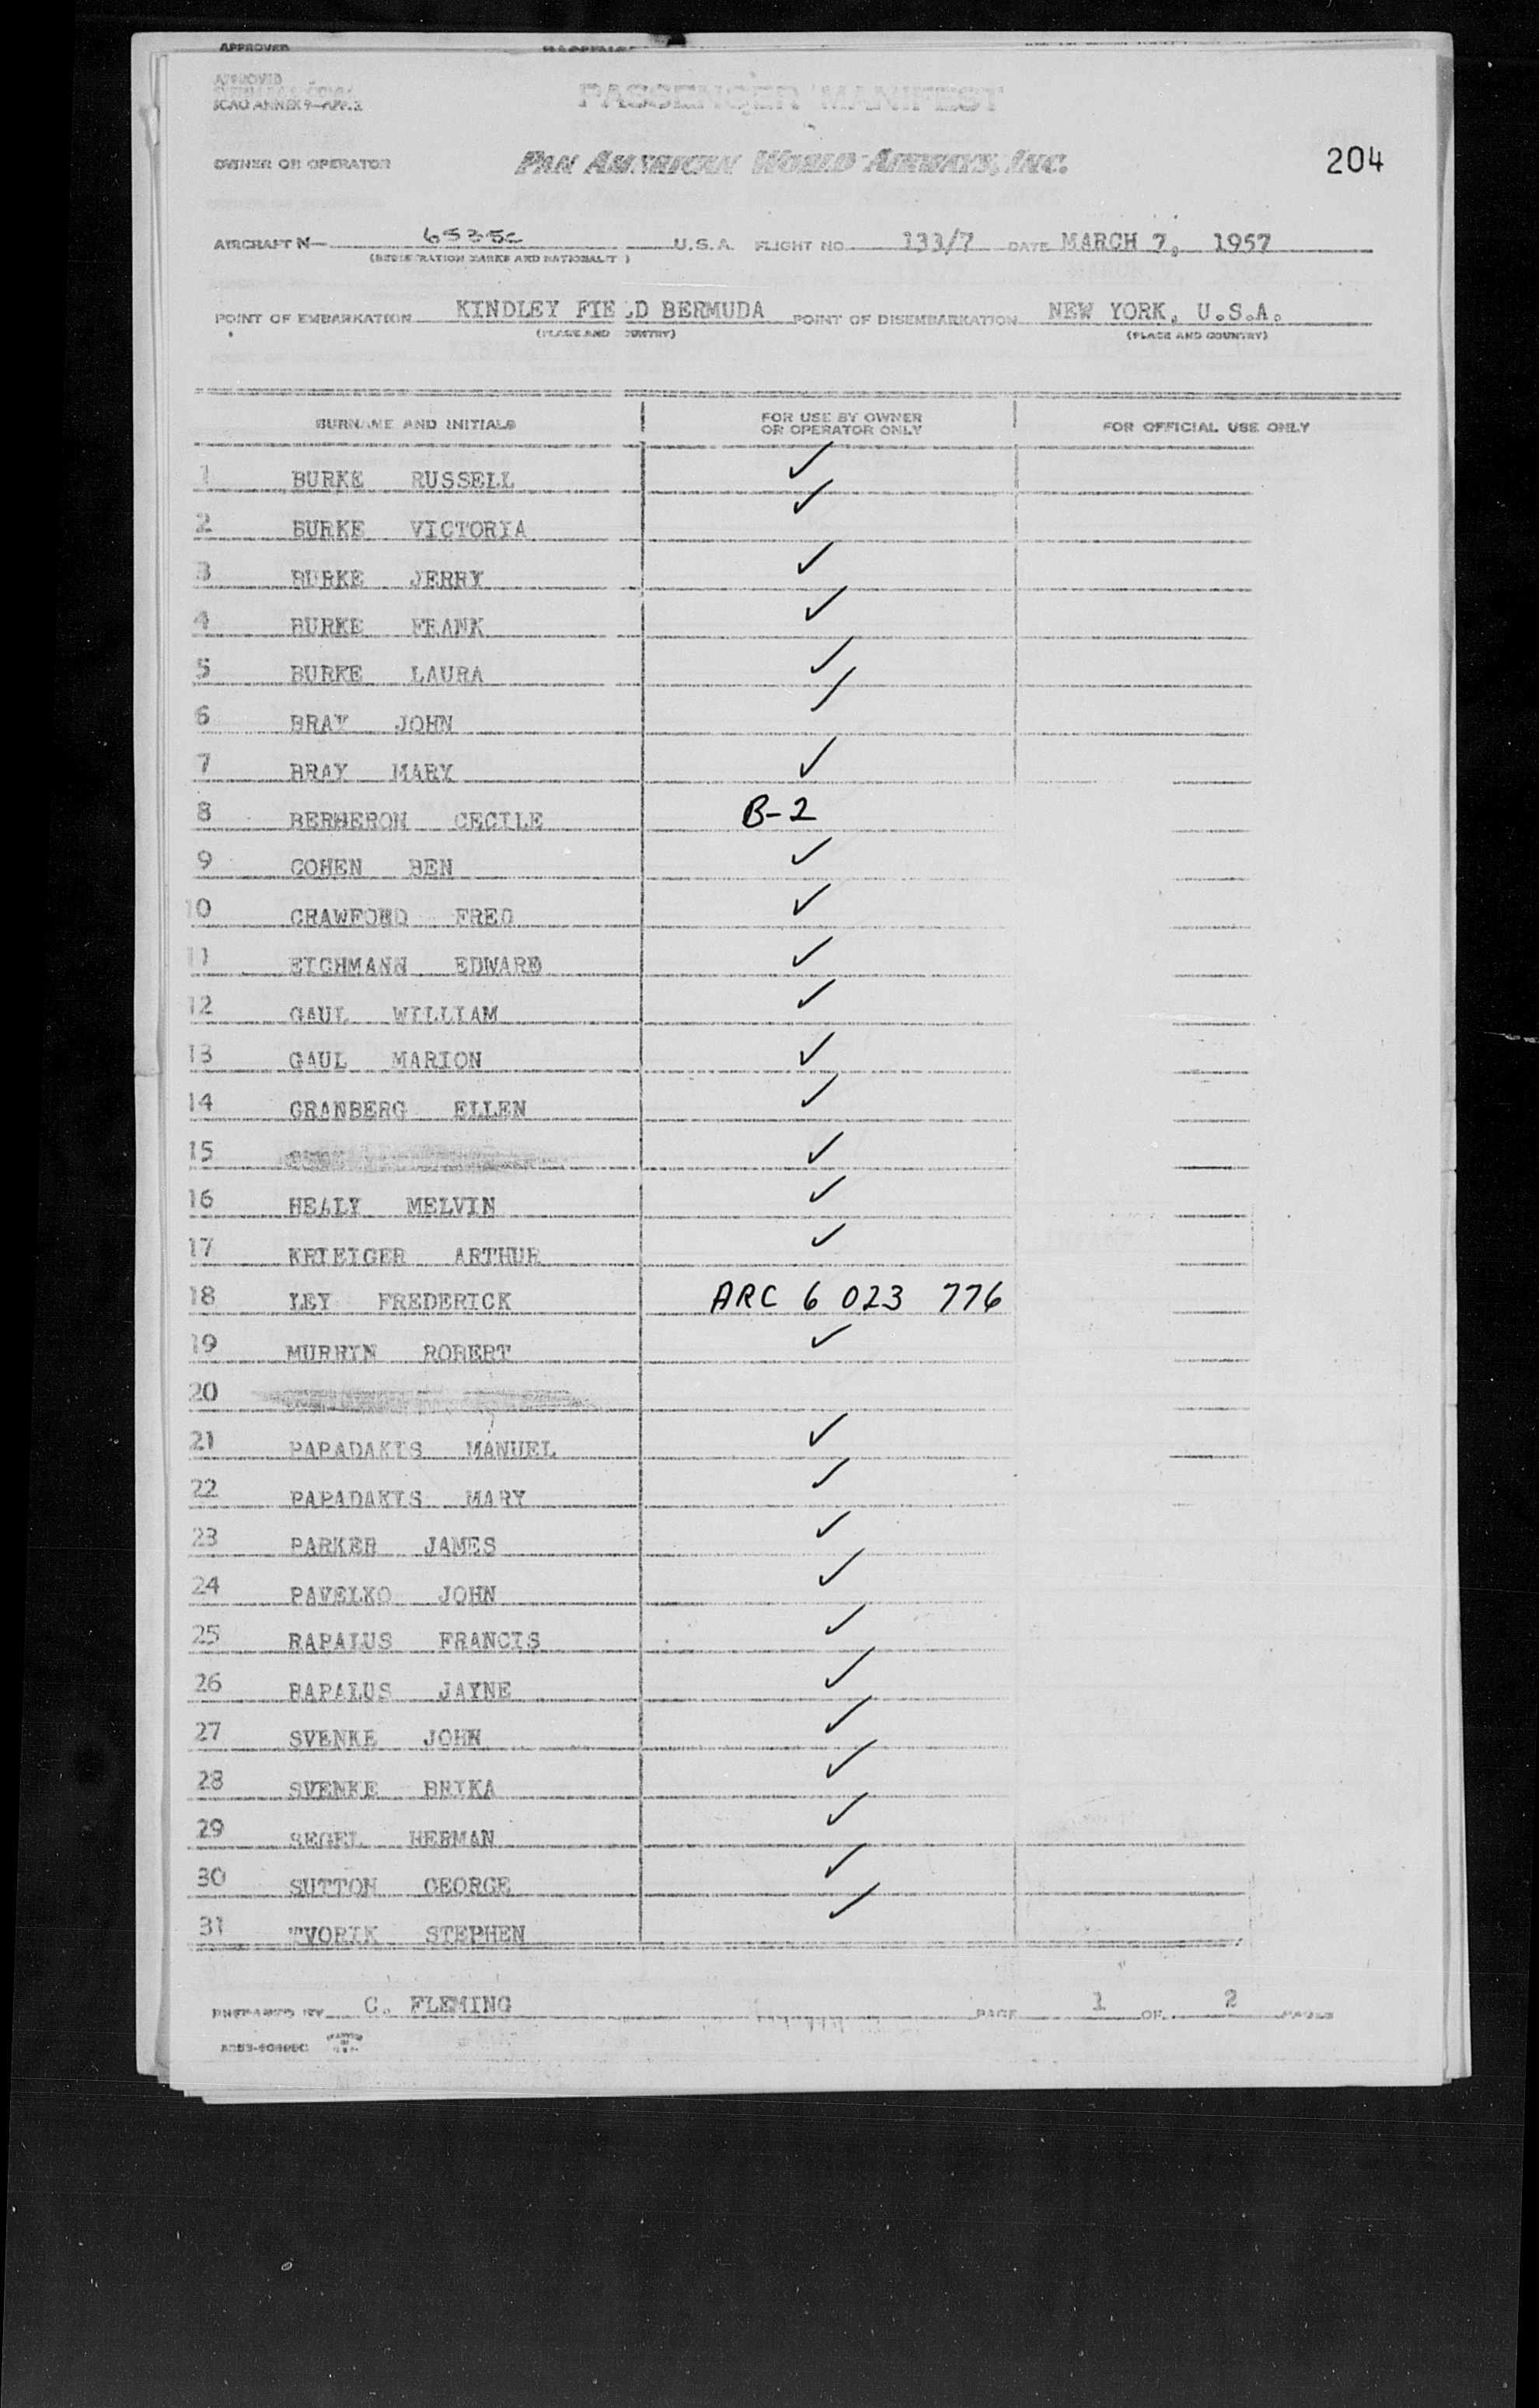 APPROVED
PASSENGER MANIFEST
APPROVED
ICAO ANNEX 9—APP. 3
OWNER OR OPERATOR PAN AMERICAN WORLD AIRWAYS, INC. 204
AIRCRAFT N— 6535C U.S.A. FLIGHT NO. 133/7 DATE MARCH 7, 1957
(REGISTRATION MARKS AND NATIONALITY)
POINT OF EMBARKATION KINDLEY FIELD BERMUDA POINT OF DISEMBARKATION NEW YORK, U.S.A.
(PLACE AND COUNTRY) (PLACE AND COUNTRY)
SURNAME AND INITIALS FOR USE BY OWNER OR OPERATOR ONLY FOR OFFICIAL USE ONLY
1 BURKE RUSSELL ✓
2 BURKE VICTORIA ✓
3 BURKE JERRY ✓
4 BURKE FRANK ✓
5 BURKE LAURA ✓
6 BRAY JOHN ✓
7 BRAY MARY ✓
8 BERHERON CECILE B-2
9 COHEN BEN ✓
10 CRAWFORD FRED ✓
11 EICHMANN EDWARD ✓
12 GAUL WILLIAM ✓
13 GAUL MARION ✓
14 GRANBERG ELLEN ✓
15 ✓
16 HEALY MELVIN ✓
17 KRIEIGER ARTHUR ✓
18 LEY FREDERICK ARC 6 023 776
19 MURRIN ROBERT ✓
20
21 PAPADAKIS MANUEL ✓
22 PAPADAKIS MARY ✓
23 PARKER JAMES ✓
24 PAVELKO JOHN ✓
25 RAPALUS FRANCIS ✓
26 RAPALUS JAYNE ✓
27 SVENKE JOHN ✓
28 SVENKE ERIKA ✓
29 SEGEL HERMAN ✓
30 SUTTON GEORGE ✓
31 TVORIK STEPHEN ✓
PREPARED BY C. FLEMING PAGE 1 OF 2 PAGES